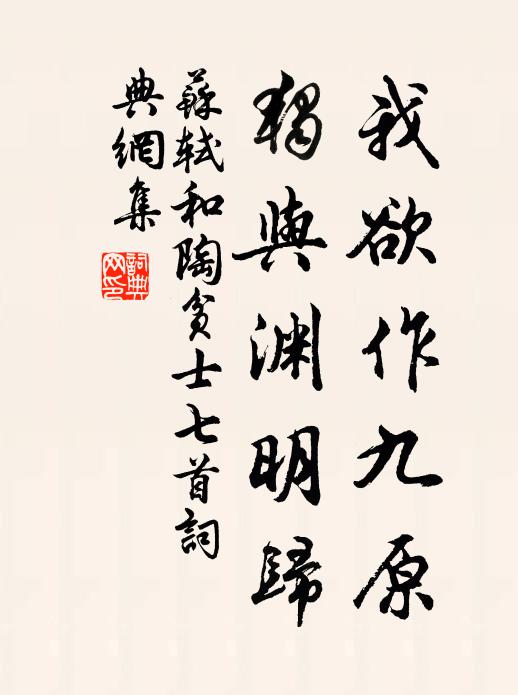 我欲作九原
獨與淵明歸
蘇軾和陶貧士七首詞
典網集
詞典网印